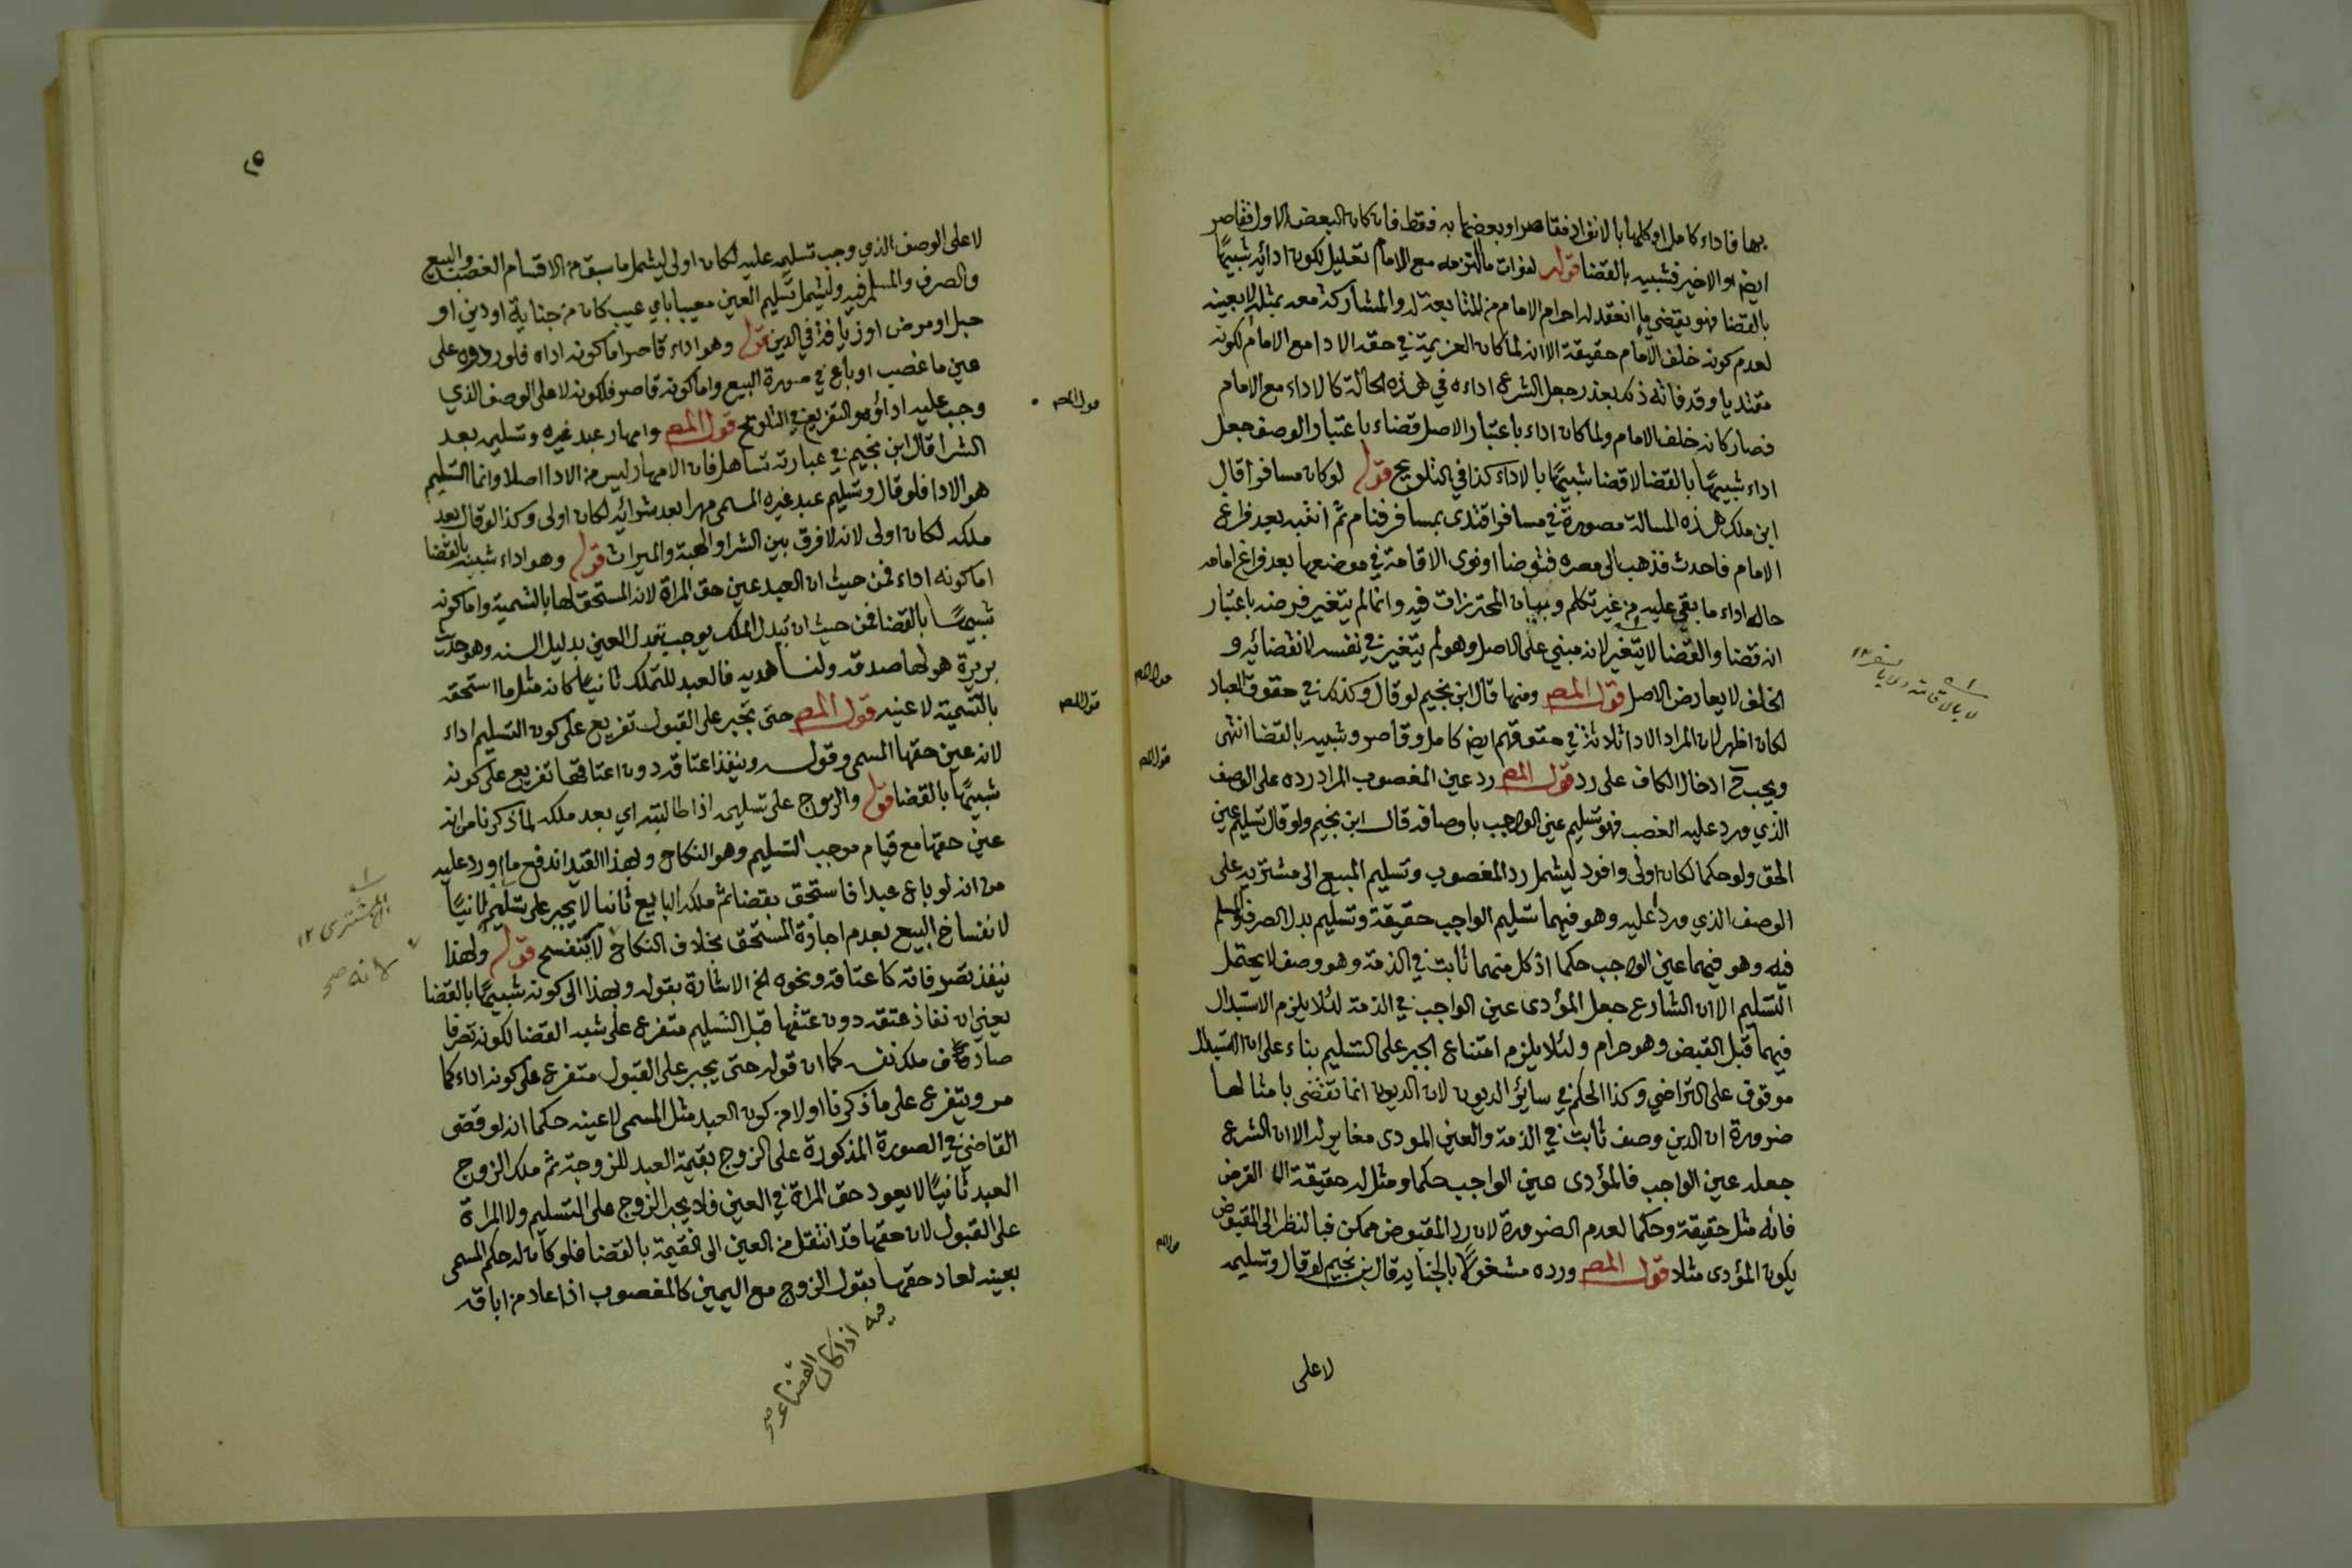 بها فاداء كامل او كلها بالانفراد فقاصر او بعضها به فقط فان كان البعض الاول فقاصر
ايضا او الاخير فشبيه بالقضا قوله لفوات ما التزمه مع الامام تعليل لكون ادائه شبيها
بالقضا فهو يقضي ما انعقد له احرام الامام من المتابعة له والمشاركة معه بمثله لا بعينه
لعدم كونه خلف الامام حقيقة الا انه لما كان العزيمة في حقه الادا مع الامام لكونه
مقتديا وقد فاته ذلك بعذر جعل الشرع اداءه في هذه الحالة كالاداء مع الامام
فصار كانه خلف الامام ولما كان اداء باعتبار الاصل قضاء باعتبار الوصف جعل
اداء شبيها بالقضا لا قضا شبيها بالاداء كذا في التلويح قوله لو كان مسافرا قال
ابن ملك هذه المسالة مصورة في مسافر اقتدى بمسافر فنام ثم انتبه بعد فراغ
الامام فاحدث فذهب الى مصره فتوضا او نوى الاقامة في موضعها بعد فراغ امامه
حال اداء ما بقي عليه من غير تكلم وبيان المحترزات فيه وانما لم يتغير فرضه باعتبار
انه قضا والقضا لا يتغير لانه مبني على الاصل وهو لم يتغير في نفسه لانقضائه و
الخلف لا يعارض الاصل قول المص ومنها قال ابن نجيم لو قال وكذلك في حقوق العباد
لكان اظهر لان المراد الادا ثلاثة في حقوقهم ايضا كامل وقاصر وشبيه بالقضا انتهى
ويجب ح ادخال الكاف على رد قول المص رد عين المغصوب المراد رده على الوصف
الذي ورد عليه الغصب فهو تسليم عين الواجب باوصافه قال ابن نجيم ولو قال تسليم عين
الحق ولو حكما لكان اولى وافود ليشمل رد المغصوب وتسليم المبيع الى مشتريه على
الوصف الذي ورد عليه وهو فيهما تسليم الواجب حقيقة وتسليم بدل الصرف والمسلم
فيه وهو فيهما عين الواجب حكما اذ كل منهما ثابت في الذمة وهو وصف لا يحتمل
التسليم الا ان الشارع جعل المؤدى عين الواجب في الذمة لئلا يلزم الاستبدال
فيهما قبل القبض وهو حرام ولئلا يلزم امتناع الجبر على التسليم بناء على ان الاستبدال
موقوف على التراضي وكذا الحكم في سائر الديون لان الديون انما تقضى بامثالها
ضرورة ان الدين وصف ثابت في الذمة والعين المودى مغاير له الا ان الشرع
جعله عين الواجب فالمؤدى عين الواجب حكما ومثل له حقيقة الا القرض
فانه مثل حقيقة وحكما لعدم الضرورة لان رد المقبوض ممكن فبالنظر الى المقبوض
يكون المؤدى مثلا قول المص ورده مشغولا بالجناية قال ابن نجيم لو قال وتسليمه
لا على
لا على الوصف الذي وجب تسليمه عليه لكان اولى ليشمل ما سبق من الاقسام الغصب والبيع
والصرف والمسلم فيه وليشمل تسليم العين معيبا باي عيب كان من جناية او دين او
حبل او مرض او زيافة في الدين قوله وهو اداء قاصر اما كونه اداه فلوروده على
عين ما غصب او باع في صورة البيع واما كونه قاصر فلكونه لا على الوصف الذي
وجب عليه اداؤه والتفريع في التلويح قول المص وامهار عبد غيره وتسليمه بعد
الشرا قال ابن نجيم في عبارته تساهل فان الامهار ليس من الادا اصلا وانما التسليم
هو الادا فلو قال وتسليم عبد غيره المسمى مهرا بعد شرائه لكان اولى وكذا لو قال بعد
ملكه لكان اولى لانه لا فرق بين الشرا والهبة والميراث قوله وهو اداء شبيه بالقضا
اما كونه اداء فمن حيث ان العبد عين حق المراة لانه المستحق لها بالتسمية واما كونه
شبيها بالقضا فمن حيث ان تبدل الملك يوجب تبدل العين بدليل السنه وهو حديث
بريرة هو لها صدقه ولنا هديه فالعبد للتملك ثانيا كانه مثل ما استحقه
بالتسمية لا عينه قول المص حتى تجبر على القبول تفريع على كون التسليم اداء
لانه عين حقها المسمى وقوله وينفذ اعتاقه دون اعتاقها تفريع على كونه
شبيها بالقضا قوله والزوج على تسليمه اذا طالبته اي بعد ملكه لما ذكرنا من انه
عين حقها مع قيام موجب التسليم وهو النكاح وبهذا القيد اندفع ما اورد عليه
من انه لو باع عبدا فاستحق بقضا ثم ملكه البايع ثانيا لا يجبر على تسليمه ثانيا
لانفساخ البيع بعدم اجازة المستحق بخلاف النكاح لا ينفسخ قوله ولهذا
ينفذ تصرفاته كاعتاقه ونحوه الخ الاشارة بقوله ولهذا الى كونه شبيها بالقضا
يعني ان نفاذ عتقه دون عتقها قبل التسليم متفرع على شبه القضا لكونه تصرفا
صادف ملك نفسه كما ان قوله حتى يجبر على القبول متفرع على كونه اداء كما
مر ويتفرع على ما ذكرنا اولا من كون العبد مثل المسمى لا عينه حكما انه لو قضى
القاضي في الصورة المذكورة على الزوج بقيمة العبد للزوجة ثم ملك الزوج
العبد ثانيا لا يعود حق المراة في العين فلا يجبر الزوج على التسليم ولا المراة
على القبول لان حقها قد انتقل من العين الى القيمة بالقضا فلو كان له حكم المسمى
بعينه لعاد حقها بقول الزوج مع اليمين كالمغصوب اذا عاد من اباقه
فيه اذا كان القضاء صح
المشترى ١٢
لانه صح
قول المص
قول المص
قول المص
قول المص